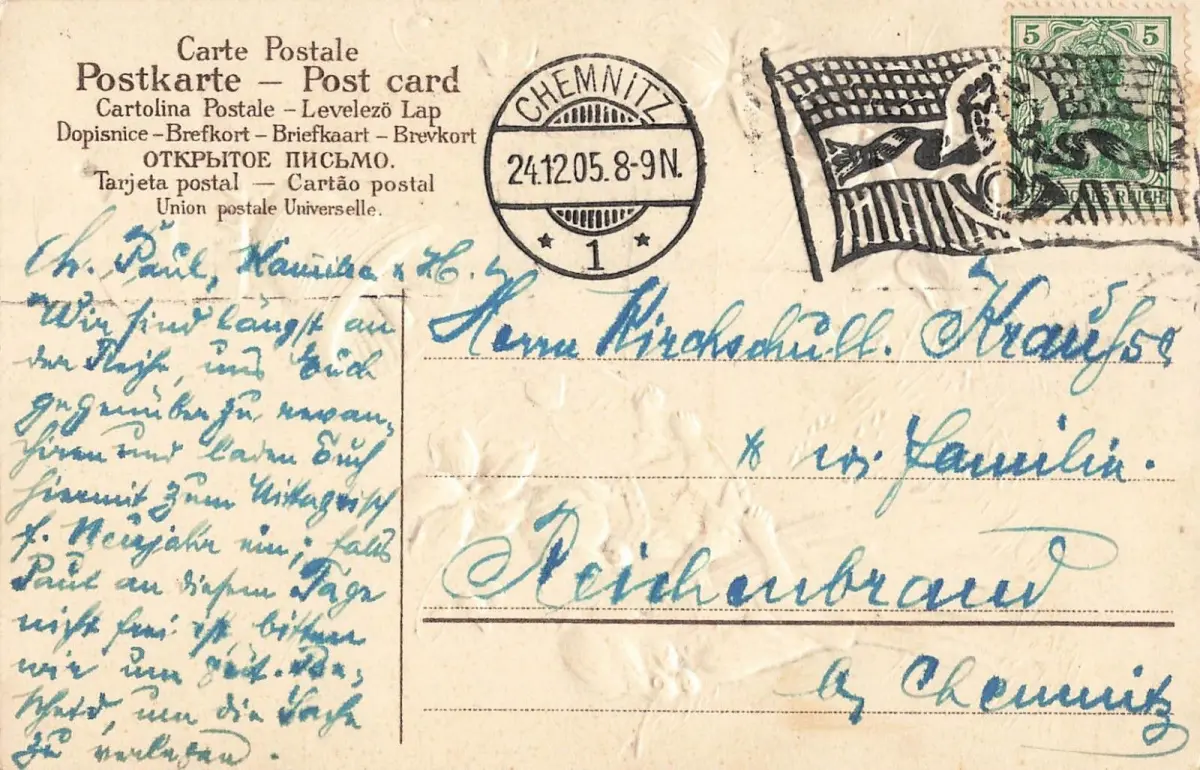 Carte Postale
Postkarte – Post card
Cartolina Postale – Levelezö Lap
Dopisnice – Brefkort – Briefkaart – Brevkort
ОТКРЫТОЕ ПИСЬМО.
Tarjeta postal — Cartão postal
Union postale Universelle.
CHEMNITZ
24.12.05. 8-9N.
* 1 *
5 5
REICH
Paul,
Wir sind längst an
der Reihe, uns Euch
gegenüber zu revan-
chiren und laden Euch
hiermit zum Mittagstisch
f. Neujahr ein; falls
Paul an diesem Tage
nicht frei ist, bitten
wir um Be-
scheid, um die Sache
zu verlegen.
Herrn Kirchschull. Krauße
Familie.
Reichenbrand
Chemnitz